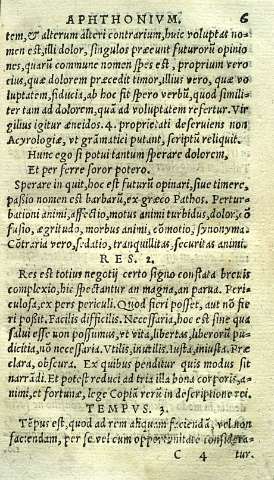 APHTHONIVM. 6
tem, & alterum alteri contrarium, huic voluptas no-
men est, illi dolor, singulos præeunt futurorũ opinio
nes, quarũ commune nomen spes est, proprium vero
eius, quæ dolorem præcedit timor, illius vero, quæ vo
luptatem, fiducia, ab hoc sit spero verbũ, quod simili-
ter tam ad dolorem, quã ad voluptatem refertur. Vir
gilius igitur æneidos. 4. proprietati deseruiens non
Acyrologiæ, vt grãmatici putant, scriptũ reliquit.
Hunc ego si potui tantum sperare dolorem,
Et per ferre soror potero.
Sperare in quit, hoc est futurũ opinari, siue timere,
passio nomen est barbarũ, ex græco Pathos. Pertur-
bationi animi, affectio, motus animi turbidus, dolor, cõ
fusio, ægritudo, morbus animi, cõmotio, synonyma.
Cõtraria vero, sedatio, tranquillitas, securitas animi.
RES. 2.
Res est totius negotij certo signo constata breuis
complexio, hic spectantur an magna, an parua. Peri-
culosa, ex pers periculi. Quod fieri posset, aut nõ fie
ri possit. Facilis difficilis. Necessaria, hoc est sine qua
salui esse non possumus, vt vita, libertas, liberorũ pu-
dicitia, nõ necessaria. Vtilis, inutilis. Iusta, iniusta. Præ
clara, obscura. Ex quibus penditur quis modus sit
narrãdi. Et potest reduci ad tria illa bona corporis, a-
nimi, et fortunæ, lege Copiã rerũ in descriptione rei.
TEMPVS. 3.
Tẽpus est, quod ad rem aliquam faciendã, vel non
faciendam, per se vel cum opportunitate considera-
C 4 tur.